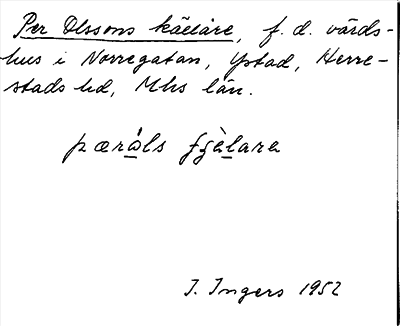 Per Olssons källare, f. d. värds-
hus i Norregatan, Ystad, Herre-
stads hd, Mhs län.
pæråls
J. Ingers 1952